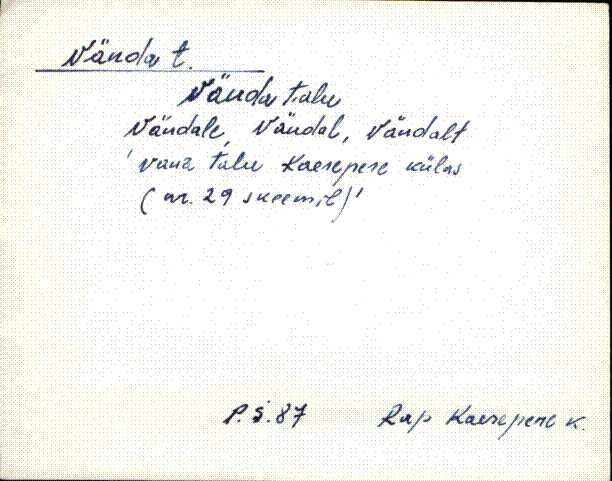 Vända t.
Vända talu
Vändale, Vändal, Vändalt
'vana talu Kaerepere külas
(nr. 29 skeemil)'
P.S. 87 Rap Kaerepere k.